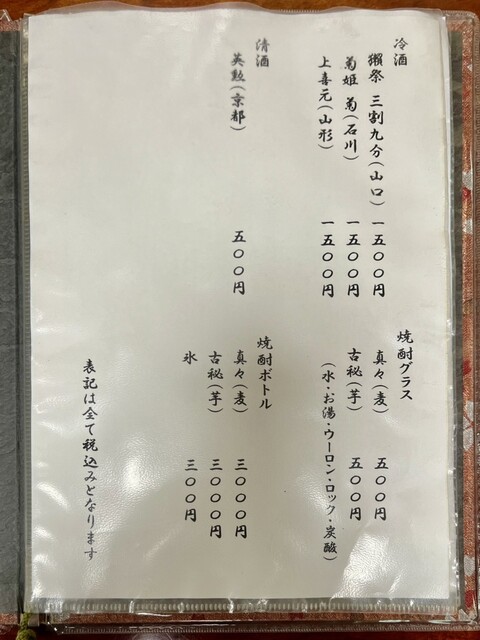 冷酒
獺祭 三割九分(山口) 一五〇〇円
菊姫 菊(石川) 一五〇〇円
上喜元(山形) 一五〇〇円
清酒
英勲(京都) 五〇〇円
焼酎グラス
真々(麦) 五〇〇円
古秘(芋) 五〇〇円
(水・お湯・ウーロン・ロック・炭酸)
焼酎ボトル
真々(麦) 三〇〇〇円
古秘(芋) 三〇〇〇円
氷 三〇〇円
表記は全て税込みとなります